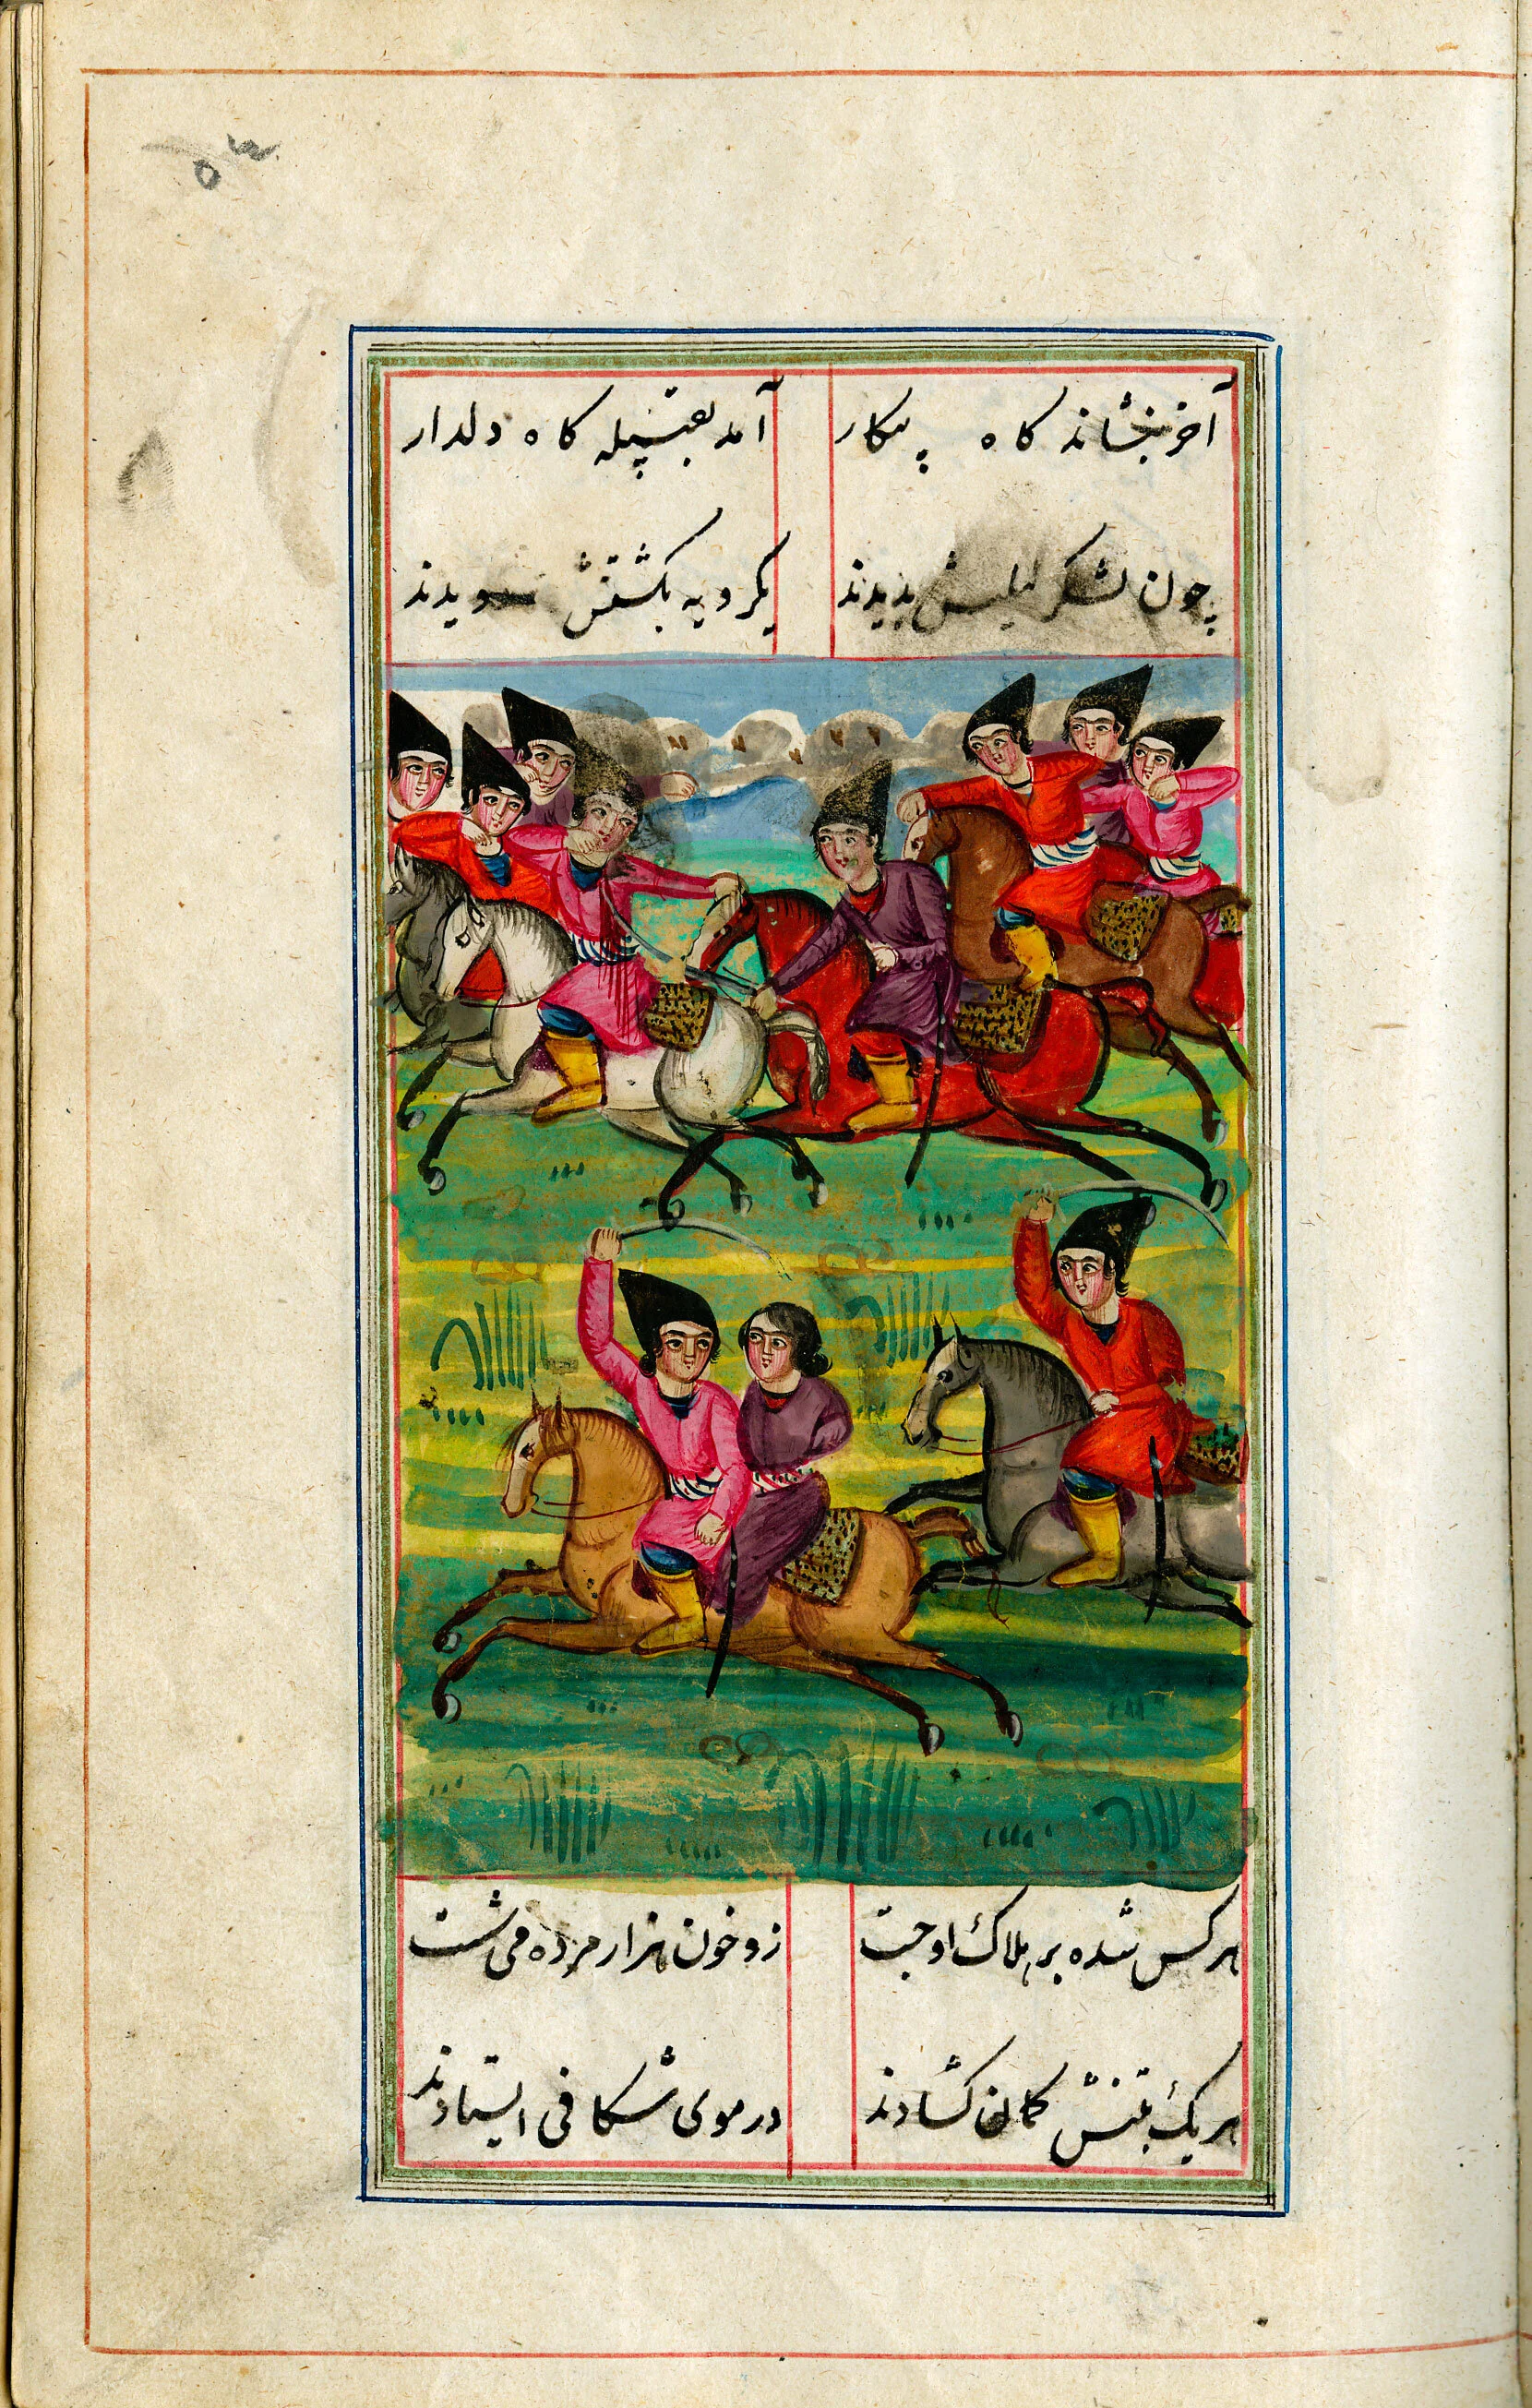 ۵۲
آخر بنشاند گاه پیکار
آمد بقبیله گاه دلدار
چون لشکر لیلیش بدیدند
یکرویه بکشتنش دویدند
هر کس شده بر هلاک او جست
زو خون هزار مرده می شست
هر یک بتنش کمان گشادند
در موی شکافی ایستادند